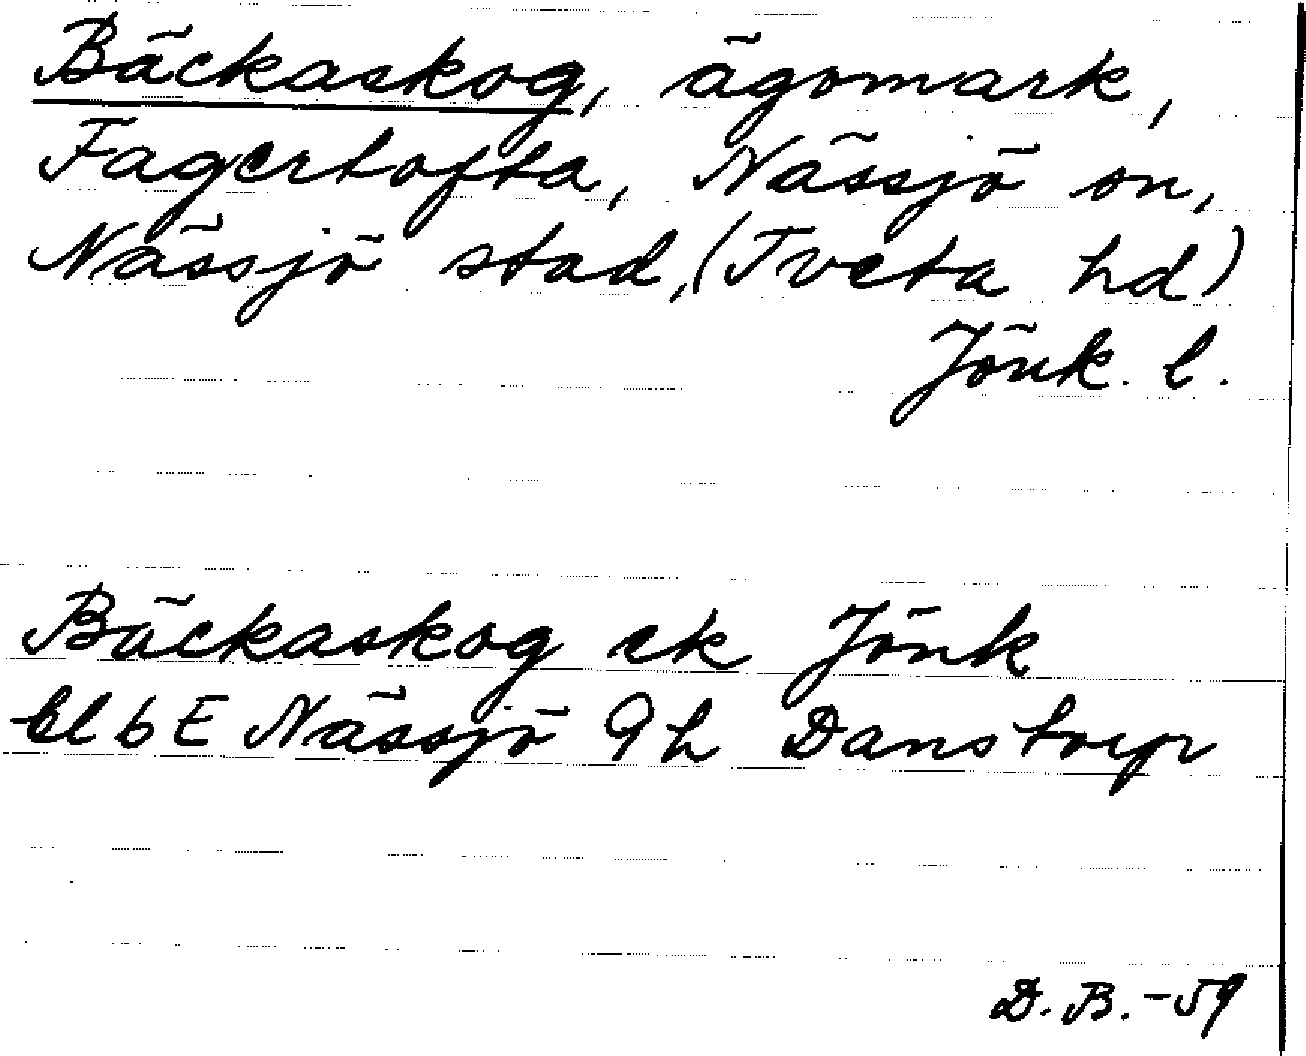 Bäckaskog, ägomark,
Fagertofta, Nässjö sn,
Nässjö stad, (Tveta hd)
Jönk. l.
Bäckaskog ek Jönk
bl 6 E Nässjö 9 h Danstorp
D. B. -59